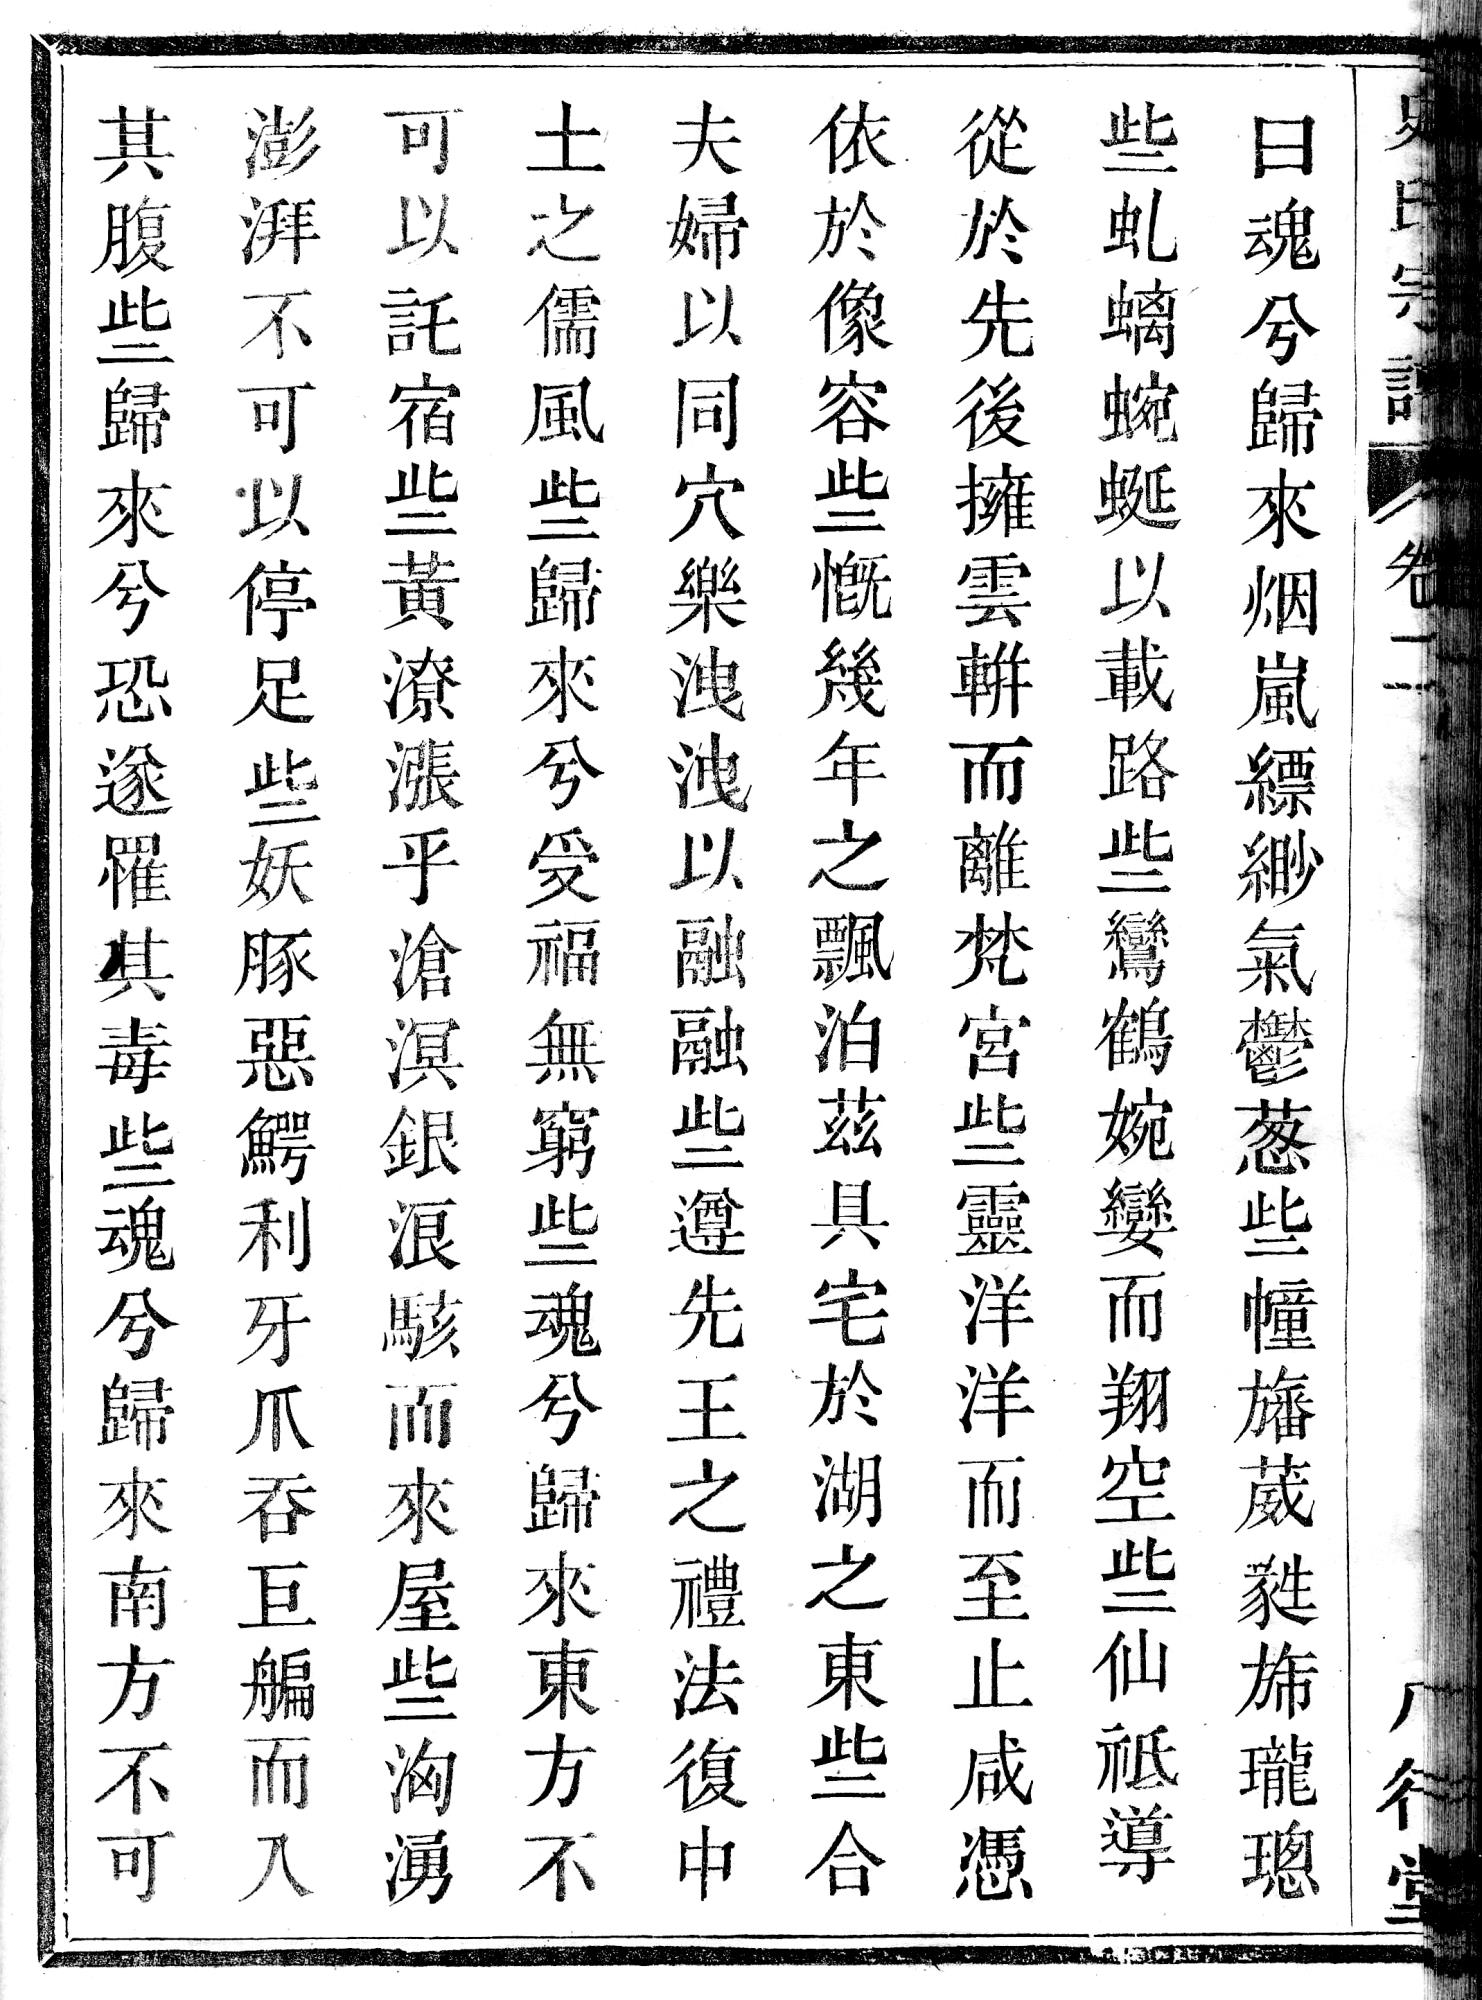 史氏宗譜 卷二 八行堂
曰魂兮歸來烟嵐縹緲氣鬱葱些幢旛葳蕤旆瓏璁
些虬螭蜿蜒以載路些鸞鶴婉孌而翔空些仙祗導
從於先後擁雲軿而離梵宮些靈洋洋而至止咸憑
依於像容些慨幾年之飄泊茲具宅於湖之東些合
夫婦以同穴樂洩洩以融融些遵先王之禮法復中
土之儒風些歸來兮受福無窮些魂兮歸來東方不
可以託宿些黃潦漲乎滄溟銀浪駭而來屋些洶湧
澎湃不可以停足些妖豚惡鰐利牙爪吞巨艑而入
其腹些歸來兮恐遂罹其毒些魂兮歸來南方不可